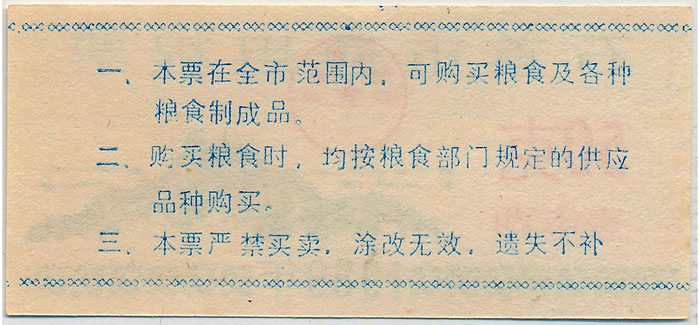 一、本票在全市范围内，可购买粮食及各种
粮食制成品。
二、购买粮食时，均按粮食部门规定的供应
品种购买。
三、本票严禁买卖，涂改无效，遗失不补